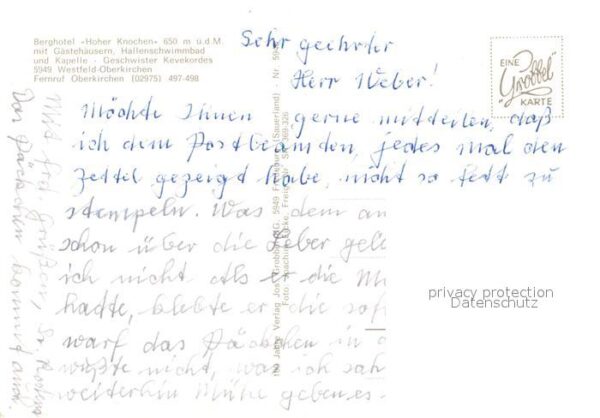 Berghotel «Hoher Knochen» 650 m ü.d.M.
mit Gästehäusern, Hallenschwimmbad
und Kapelle · Geschwister Kevekordes
5949 Westfeld-Oberkirchen
Fernruf Oberkirchen (02975) 497-498
EINE
"Grobbel"
KARTE
Sehr geehrter
Herr Weber!
Möchte Ihnen gerne mitteilen, daß
ich dem Postbeamden, jedes mal den
Zettel gezeigt habe, nicht so fett zu
stempeln. Was dem an
schon über die Leber gel
ich nicht als er die M
hadte, klebte er die sof
warf das Päckchen in d
wußte nicht, was ich sah
weiterhin Mühe geben es
Mit frd. Grüßen,
Das Päckchen kommt an
Jos. Grobbel KG, 5949 Fredeburg (Sauerland) · Nr.
privacy protection
Datenschutz